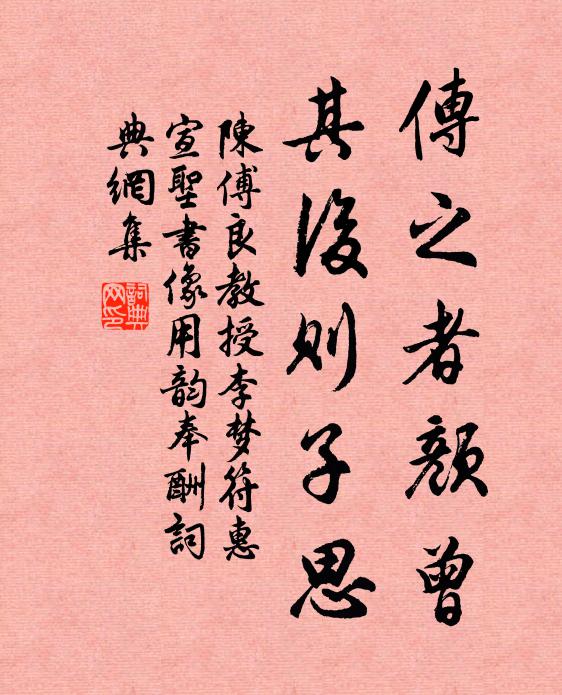 傳之者顏曾
其後則子思
陳傅良教授李梦符惠
宣聖書像用韵奉酬詞
典網集
詞典网印